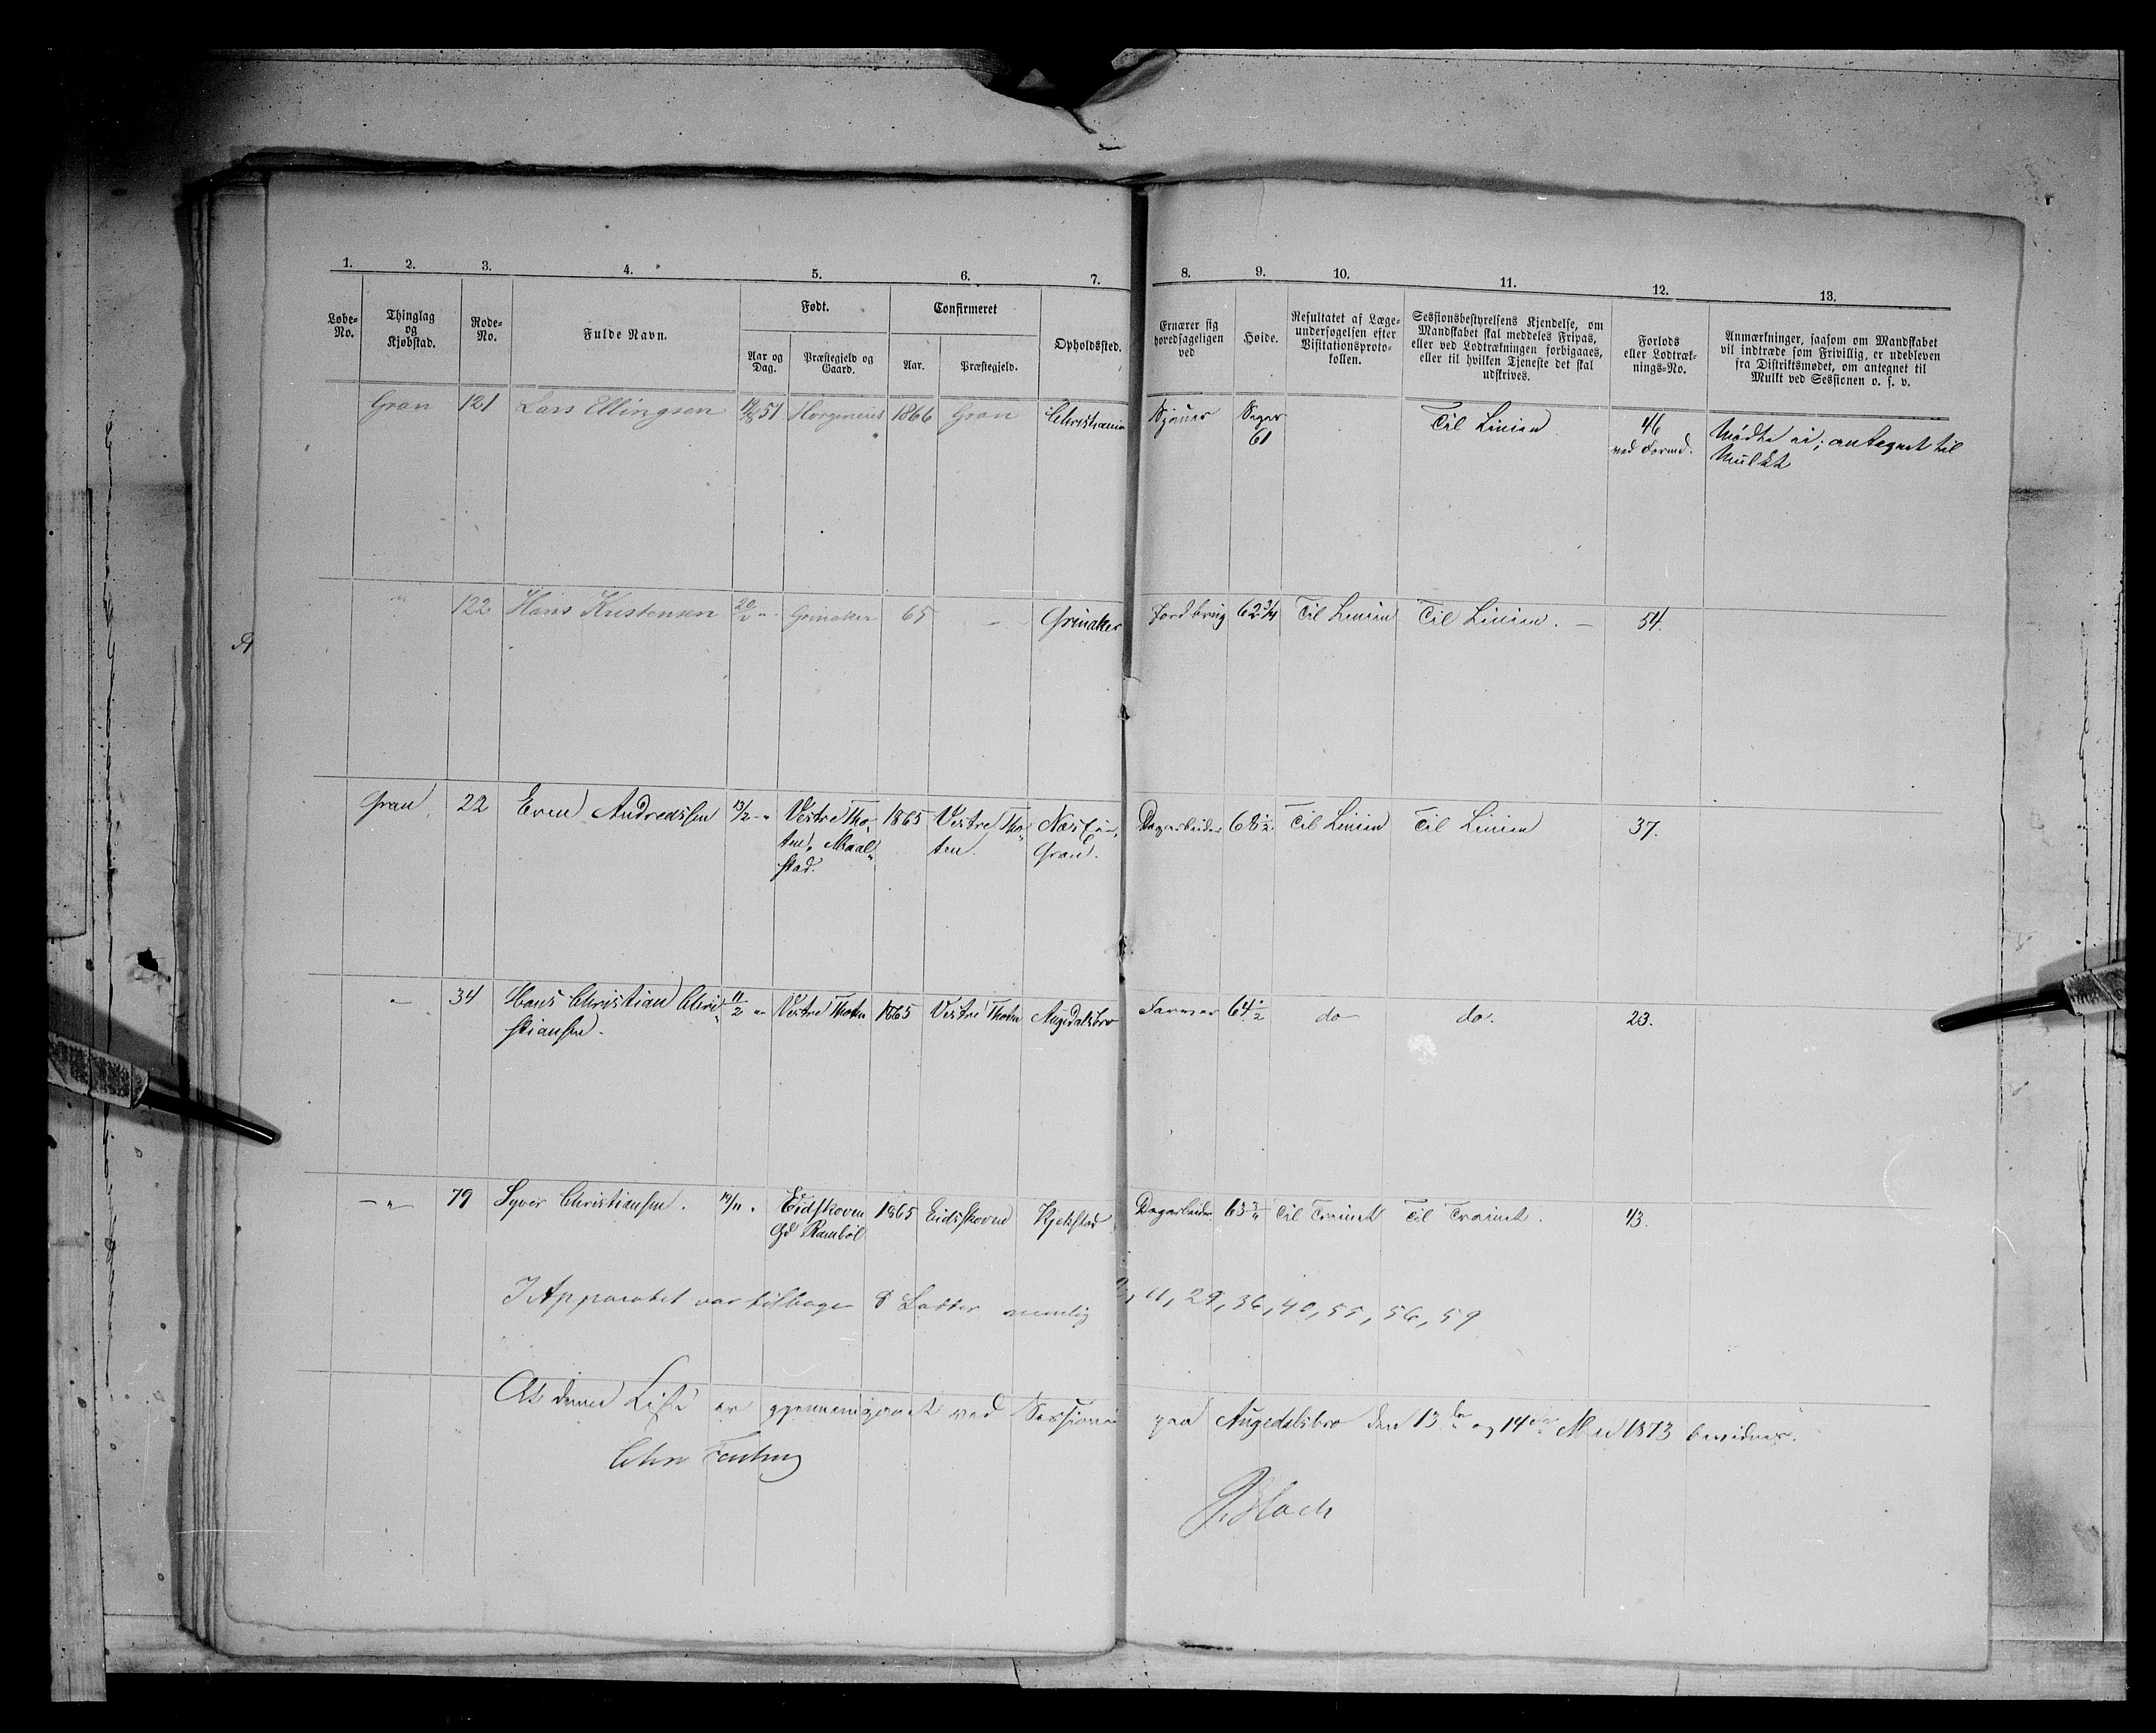 1. 2. 3. 4. 5. 6. 7. 8. 9. 10. 11. 12. 13.
Løbe-No.
Thinglag og Kjøbstad.
Rode-No.
Fulde Navn.
Født.
Aar og Dag.
Præstegjeld og Gaard.
Confirmeret
Aar.
Præstegjeld.
Opholdssted.
Ernærer sig hovedsageligen ved
Høide.
Resultatet af Læge-undersøgelsen efter Visitationsproto-kollen.
Sessionsbestyrelsens Kjendelse, om Mandskabet skal meddeles Fripas, eller ved Lodtrækningen forbigaaes, eller til hvilken Tjeneste det skal udskrives.
Forlods eller Lodtræk-nings-No.
Anmærkninger, saasom om Mandskabet vil indtræde som Frivillig, er udebleven fra Distriktsmødet, om antegnet til Mulkt ved Sessionen o. s. v.
Gran 121 Lars Ellingsen 51 1866 Gran Christiania Sjouer Siger 61 Til Linien 46 ved Formd. Mødte ei; antegnet til
Mulkt
" 122 Hans Kristensen 20/2 " Grinaker 65 - Grinaker Jordbrug 62 3/4 Til Linien Til Linien. — 54.
Gran 22 Even Andreassen 13/2 - " Vestre Tho- 1865 Vestre Tho- Dagarbeider 68 1/2 Til Linien Til Linien 37.
ten, Maal- ten. Gran.
stad.
" 34 Hans Christian Chri- 11/2 " Vestre Thoten 1865 Vestre Thoten Augedalsbro Farver 64 1/2 do do. 23.
stiansen.
— " — 79 Syver Christiansen. 19/11 " Eidskoven 1865 Eidskoven Kjekstad Dagarbeider 63 3/4 Til Trainet Til Trainet. 43.
Gd Rambøl
I Apparatet var tilbage 8 Lodder nemlig 9, 11, 29, 36, 40, 55, 56, 59
At denne Liste er gjennemgaaet ved Sessionen paa Augedalsbro den 13de og 14de Mai 1873 bevidnes.